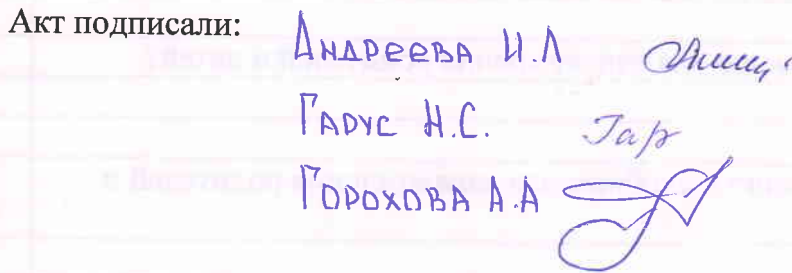 Акт подписали: Андреева И.Л
Гарус Н.С. Гар
Горохова А.А